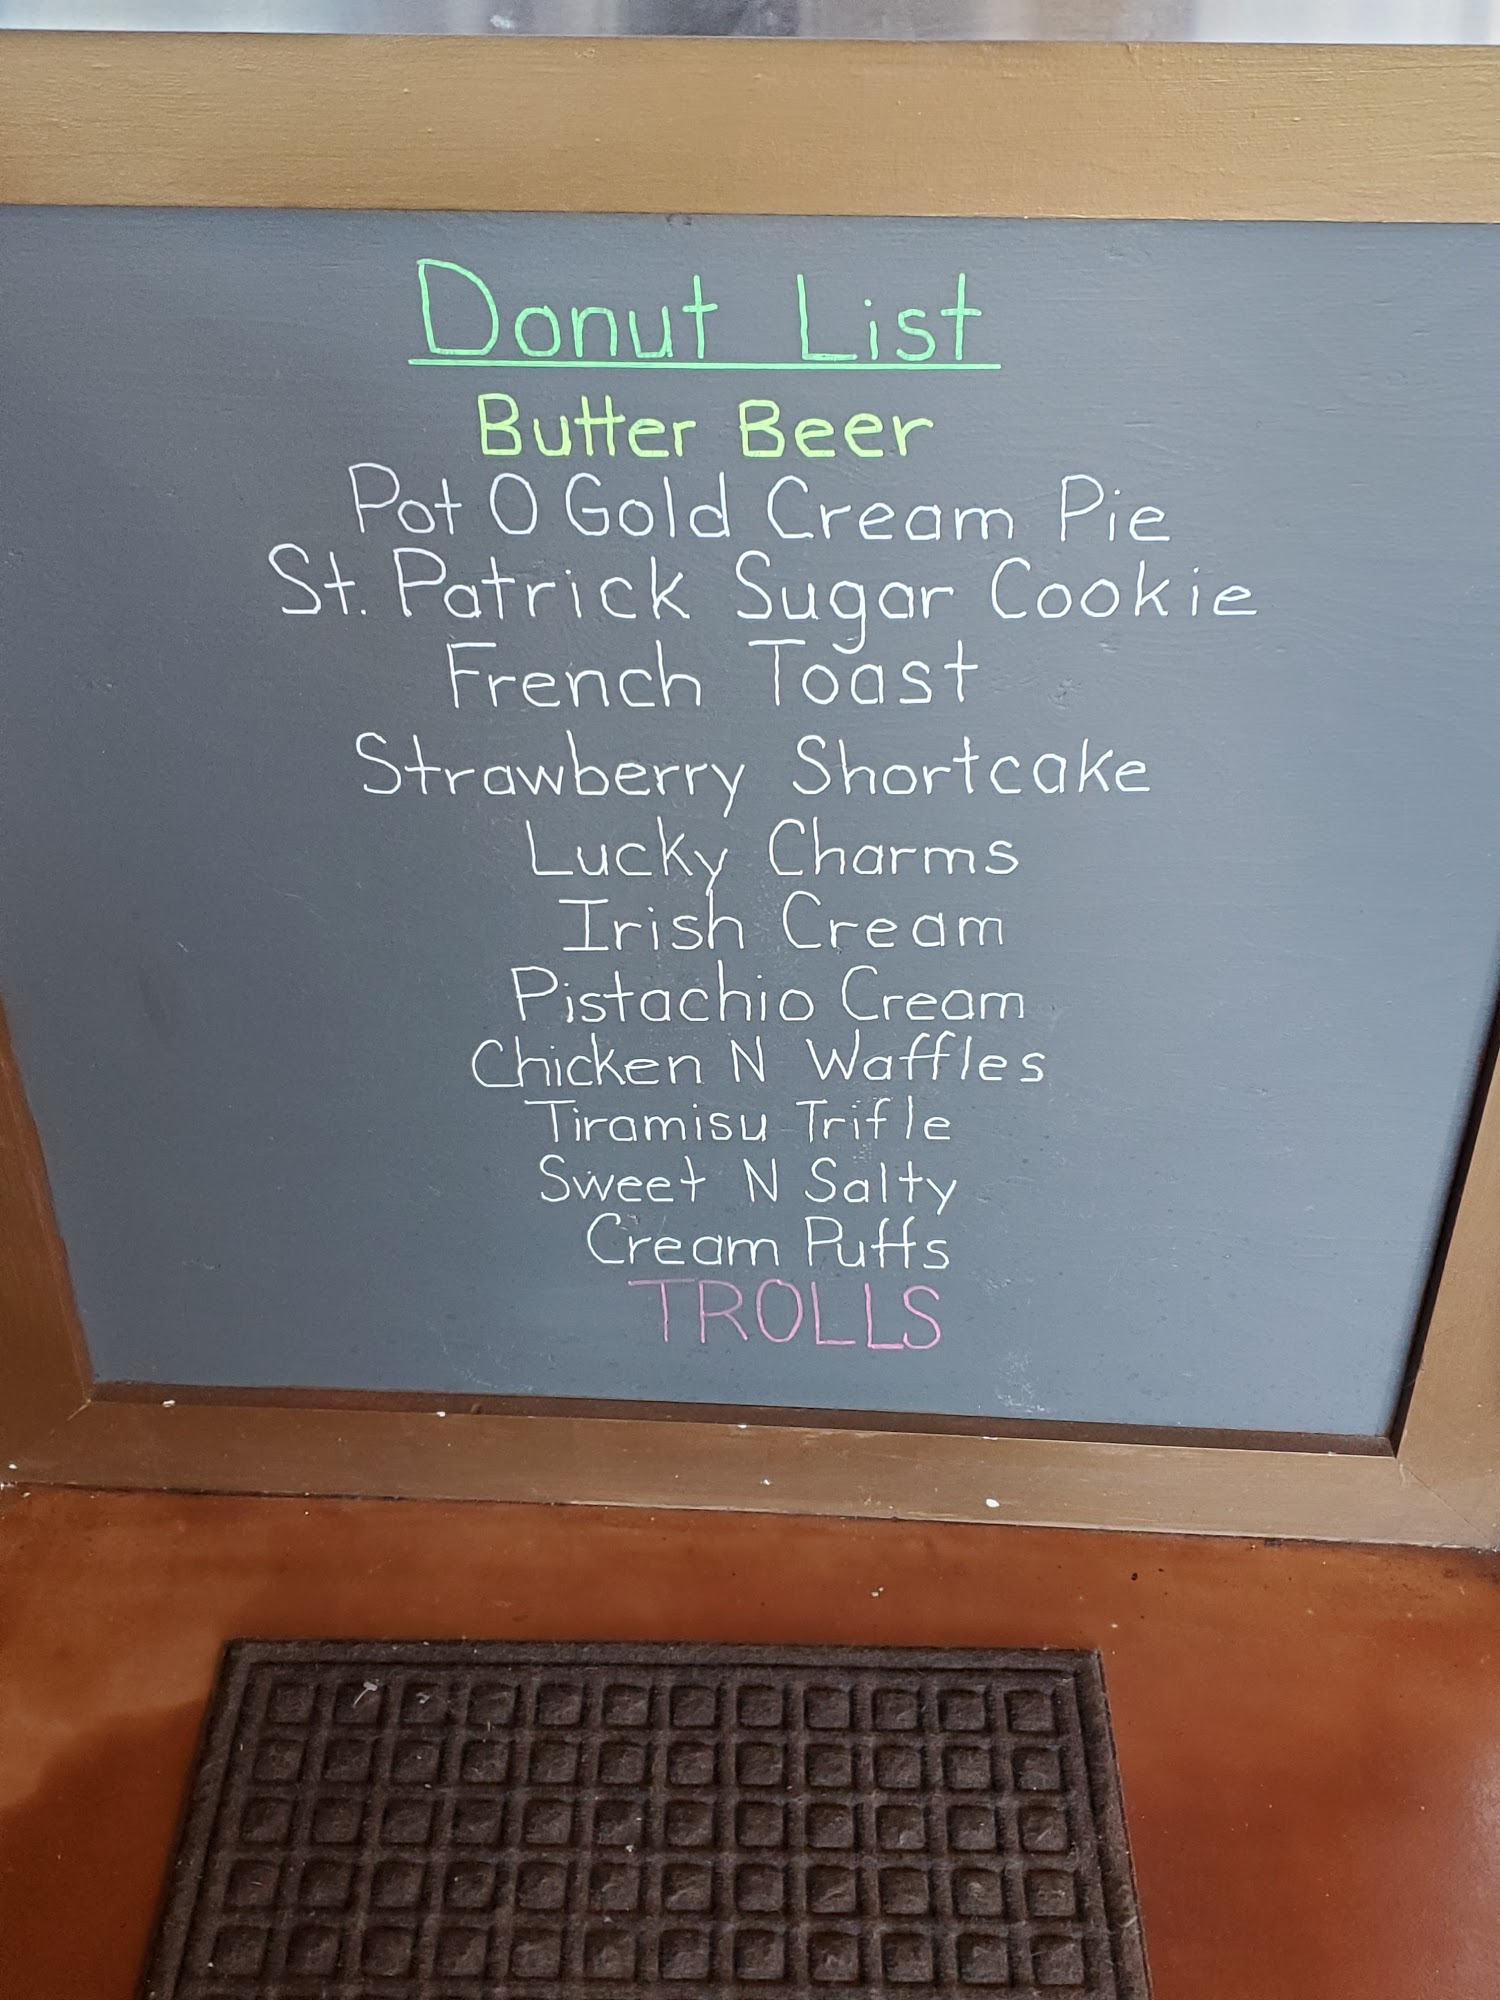 Donut List
Butter Beer
Pot O Gold Cream Pie
St. Patrick Sugar Cookie
French Toast
Strawberry Shortcake
Lucky Charms
Irish Cream
Pistachio Cream
Chicken N Waffles
Tiramisu Trifle
Sweet N Salty
Cream Puffs
TROLLS